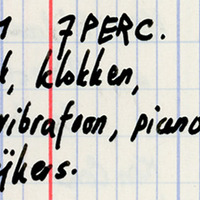 1 7 PERC.
klokken,
vibrafoon, piano
ijkers.